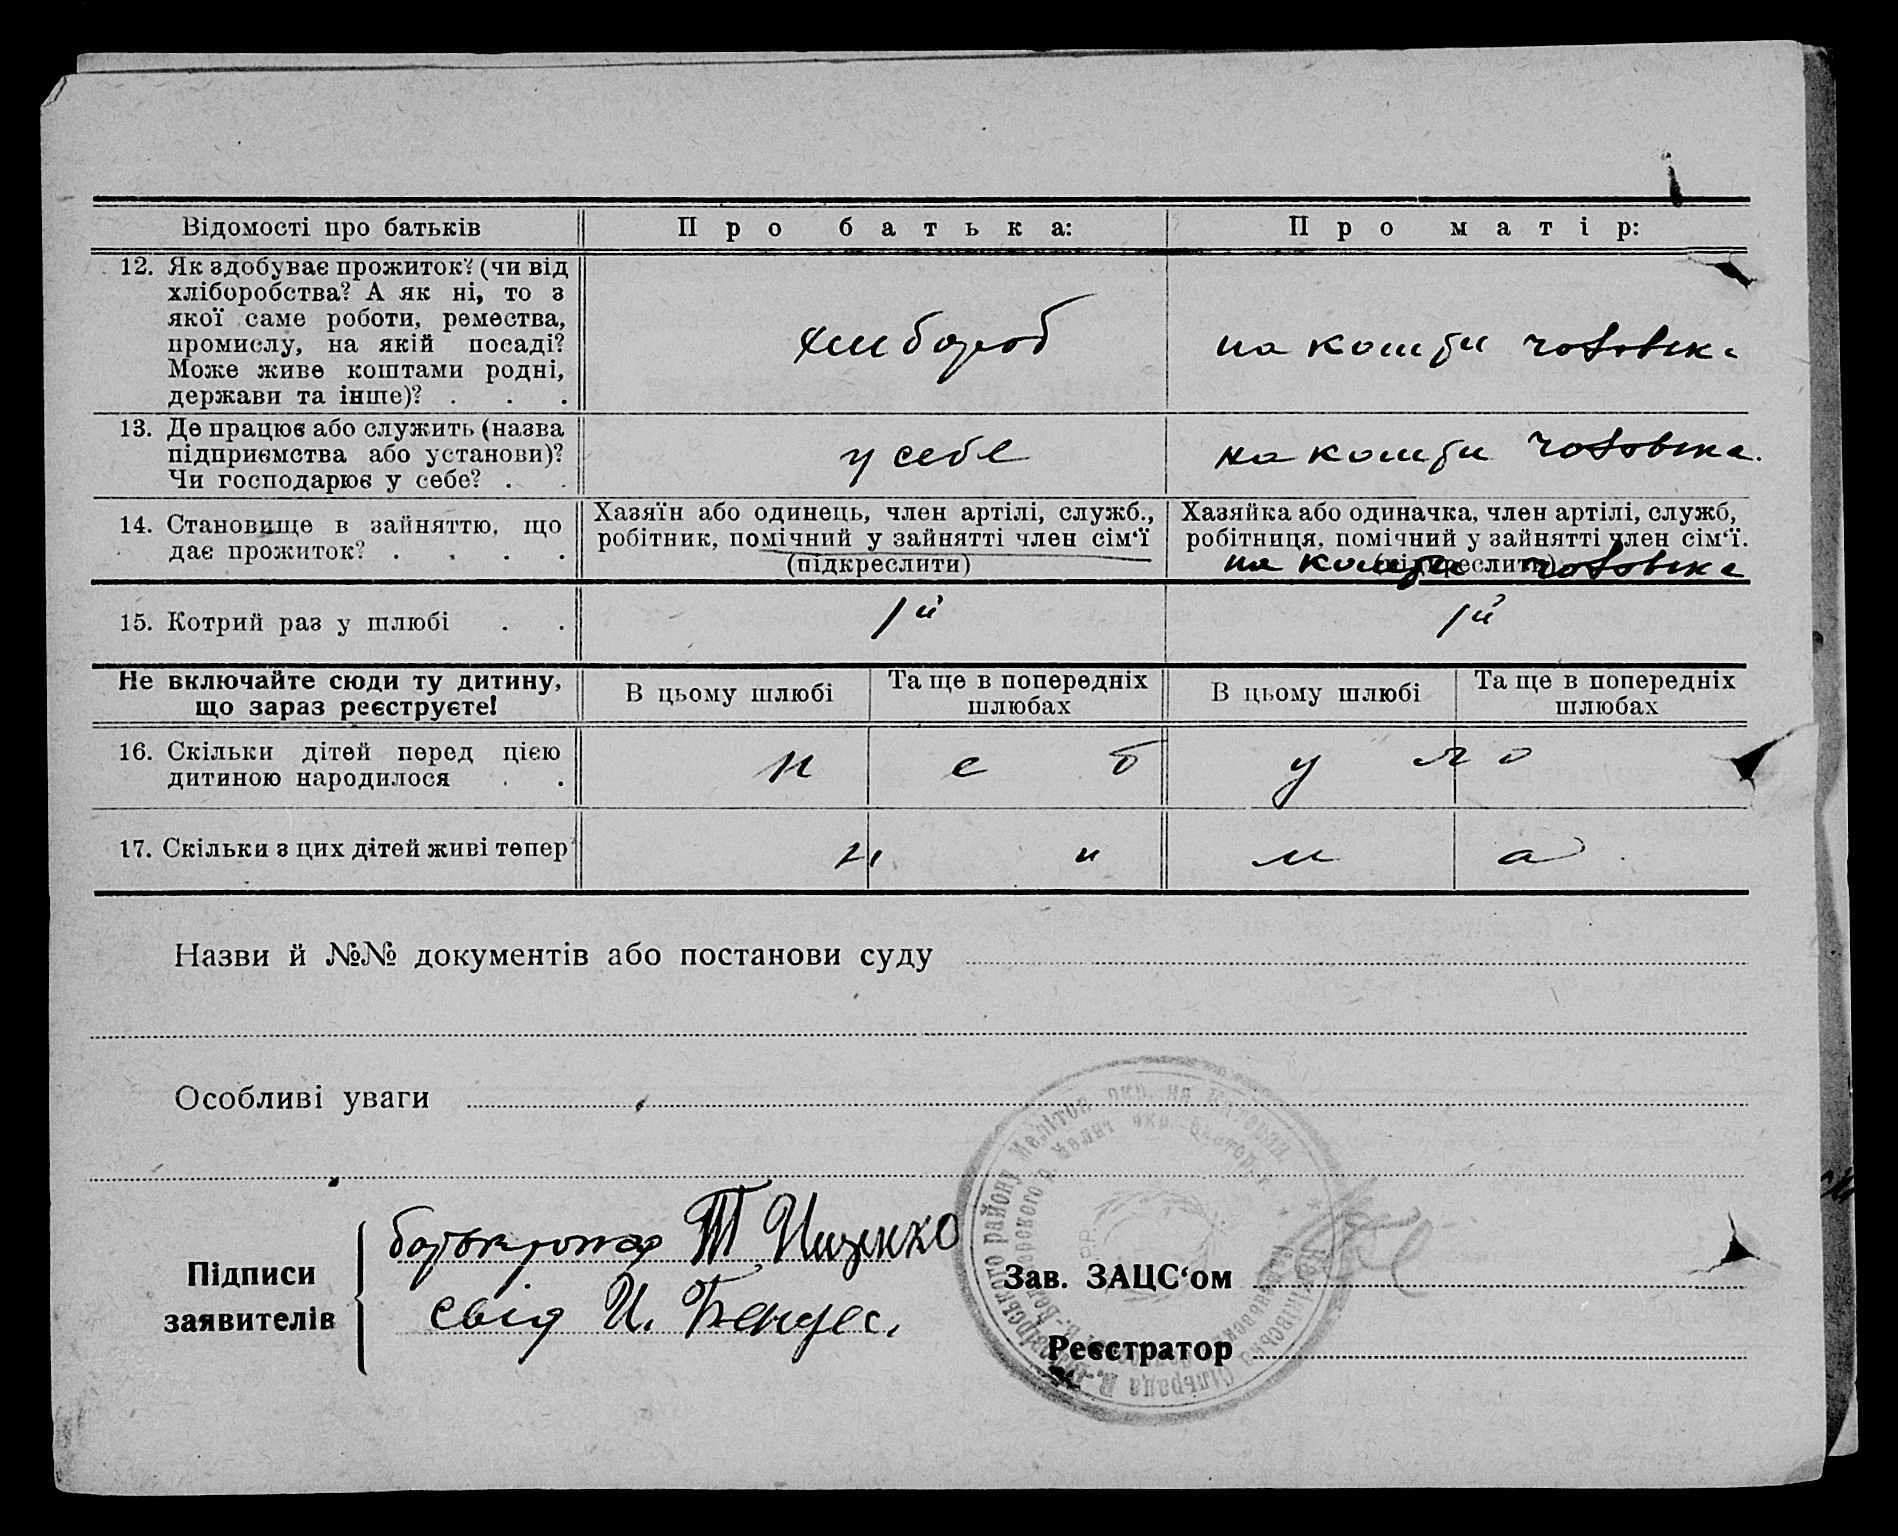 Відомості про батьків
Про батька:
Про матір:
12. Як здобуває прожиток? (чи від
хліборобства? А як ні, то з
якої саме роботи, ремества,
промислу, на якій посаді?
Може живе коштами родні,
держави та інше)? . . .
хлибороб
на кошти чоловіка
13. Де працює або служить (назва
підприємства або установи)?
Чи господарює у себе? . .
у себе
на кошти чоловіка.
14. Становище в зайняттю, що
дає прожиток? . . . .
Хазяїн або одинець, член артілі, служб.,
робітник, помічний у зайнятті член сім'ї
(підкреслити)
Хазяйка або одиначка, член артілі, служб,
робітниця, помічний у зайнятті член сім'ї.
(підкреслити)
на кошти чоловіка
15. Котрий раз у шлюбі . .
1й
1й
Не включайте сюди ту дитину,
що зараз реєструєте!
В цьому шлюбі
Та ще в попередніх
шлюбах
В цьому шлюбі
Та ще в попередніх
шлюбах
16. Скільки дітей перед цією
дитиною народилося . .
не було
17. Скільки з цих дітей живі тепер
нима
Назви й №№ документів або постанови суду
Особливі уваги
Підписи
заявителів
Т
свід И.
Зав. ЗАЦС'ом
Реєстратор
району Мелітоп. окр. на
Сільрада